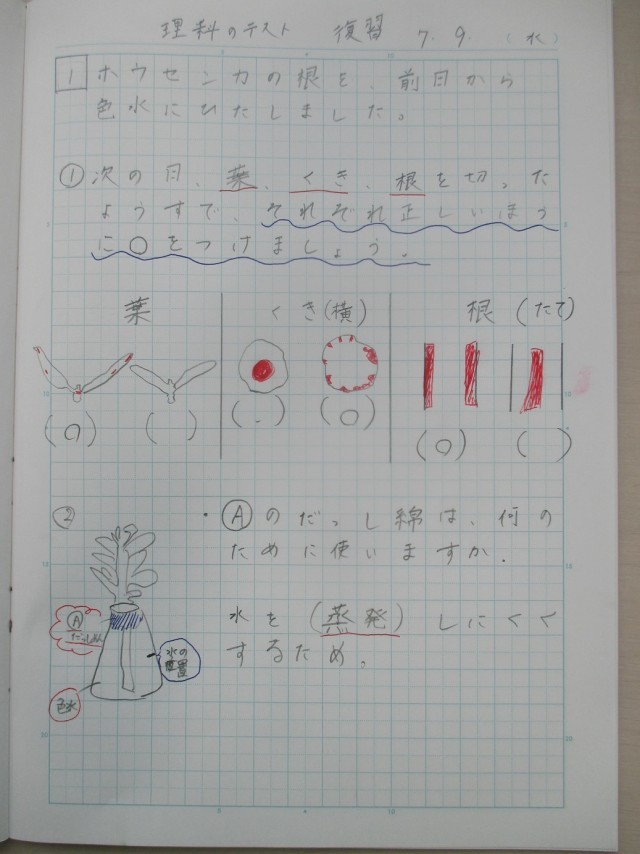 理科のテスト 復習 7.9.(水)
1 ホウセンカの根を、前日から
色水にひたしました。
① 次の日、葉、くき、根を切った
ようすで、それぞれ正しいほう
に○をつけましょう。
葉 くき(横) 根(たて)
(○) ( ) (.) (○) (○) ( )
② ・Ⓐのだっし綿は、何の
ために使いますか.
水を(蒸発)しにくく
するため。
Ⓐ
だっしめん
水の
位置
色水